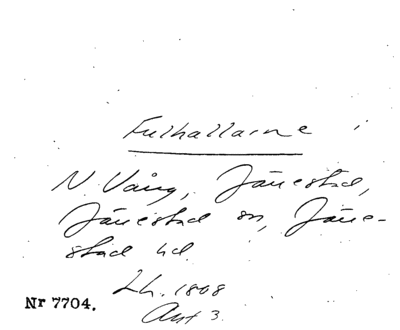 Fulhallarne i
N. Vång, Järrestad,
Järrestad sn, Järre-
stad hd.
Lh. 1808
Akt 3.
Nr 7704.